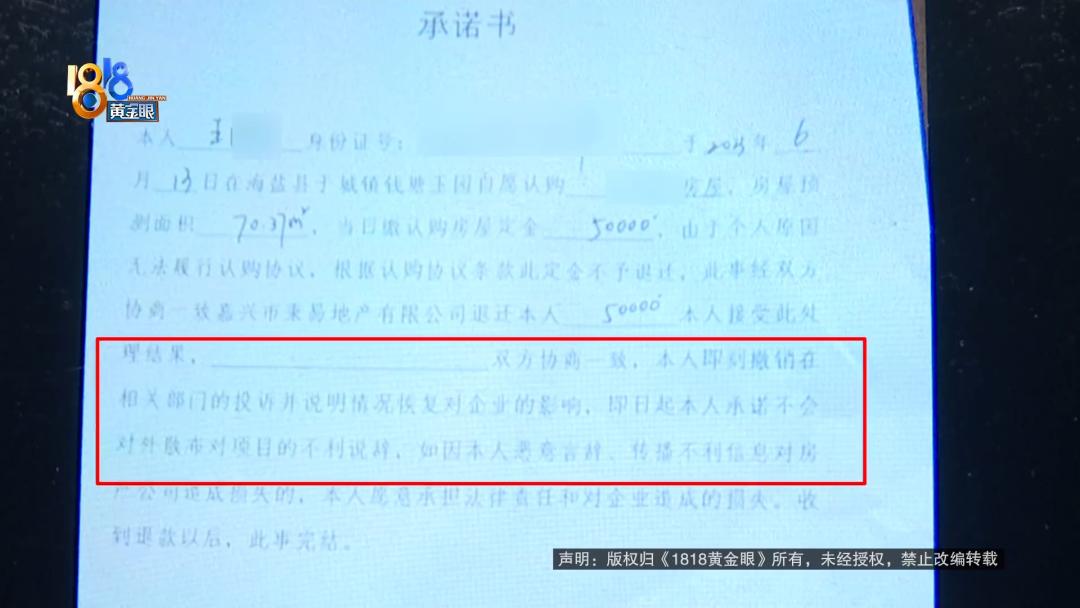 承诺书
1818
HUANG JIN YAN
黄金眼
本人 王 身份证号： 于2023年 6
月 13 日在海盐县于城镇钱塘玉园自愿认购 1 房屋，房屋预
测面积 70.37m² ，当日缴认购房屋定金 50000 ，由于个人原因
无法履行认购协议，根据认购协议条款此定金不予退还，此事经双方
协商一致嘉兴市秉易地产有限公司退还本人 50000 本人接受此处
理结果， 双方协商一致，本人即刻撤销在
相关部门的投诉并说明情况恢复对企业的影响，即日起本人承诺不会
对外散布对项目的不利说辞，如因本人恶意言辞、传播不利信息对房
产公司造成损失的，本人愿意承担法律责任和对企业造成的损失。收
到退款以后，此事完结。
声明：版权归《1818黄金眼》所有，未经授权，禁止改编转载